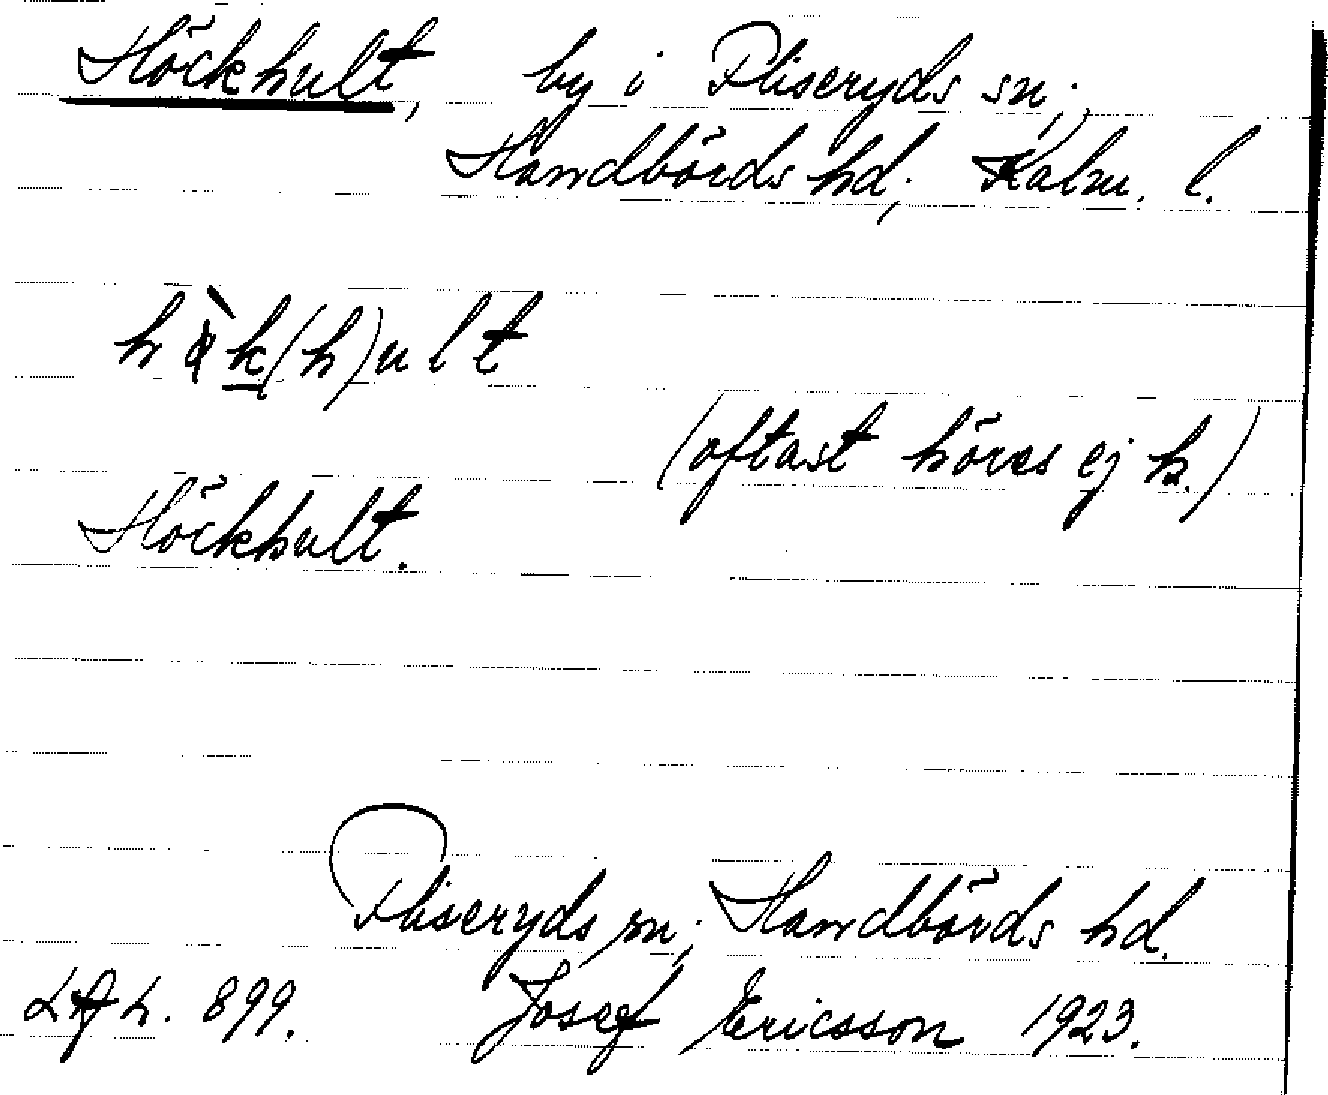 Höckhult, by i Fliseryds sn;
Handbörds hd; Kalm. l.
hø̀k(h)ult
(oftast höres ej h.)
Höckhult.
Fliseryds sn; Handbörds hd.
899. Josef Ericsson 1923.